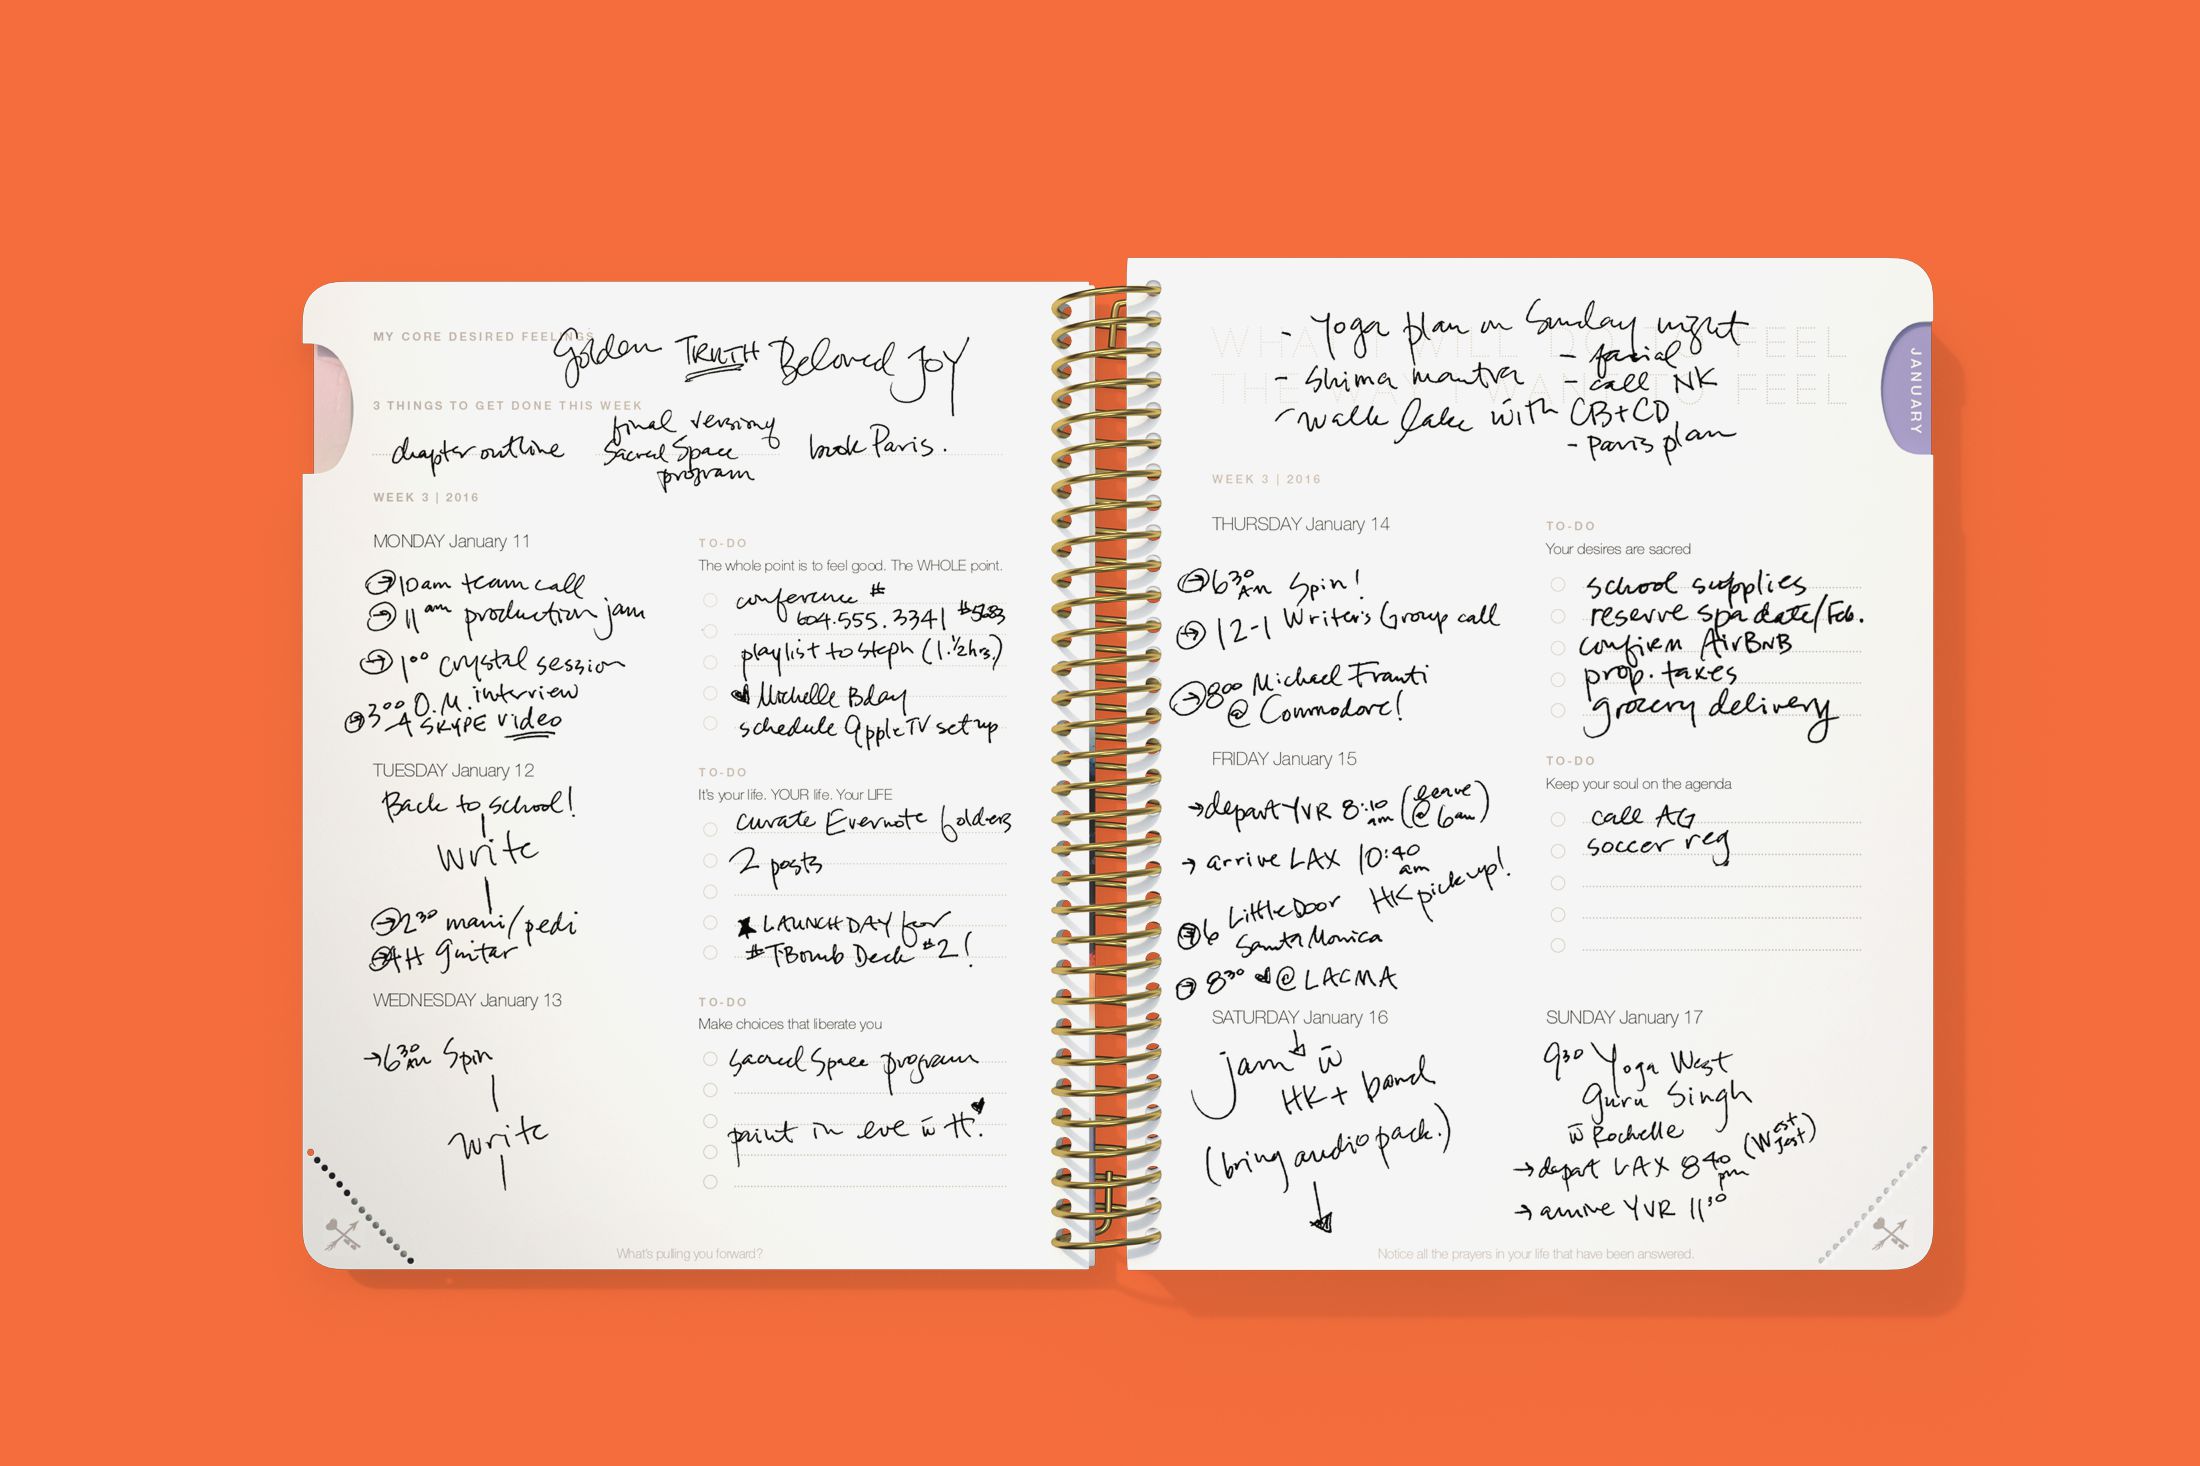 MY CORE DESIRED FEELINGS
Golden TRUTH Beloved JOY
3 THINGS TO GET DONE THIS WEEK
chapter outline
final version of
Sacred Space
program
book Paris.
WEEK 3 | 2016
MONDAY January 11
10am team call
11am production jam
1:00 crystal session
3:00 O.M. interview
SKYPE video
TO-DO
The whole point is to feel good. The WHOLE point.
conference #
604.555.3341 #5683
playlist to steph (1.1/2hrs.)
Michelle Bday
schedule Apple TV set up
TUESDAY January 12
Back to school!
write
2:30 mani/pedi
4 H guitar
TO-DO
It's your life. YOUR life. Your LIFE
curate Evernote folders
2 posts
★ LAUNCH DAY for
#TBomb Deck #2!
WEDNESDAY January 13
→ 6:30 AM Spin
write
TO-DO
Make choices that liberate you
Sacred Space program
paint in eve w̄ H! ♥
What's pulling you forward?
WHAT I WILL DO TO FEEL
THE WAY I WANT TO FEEL
- Yoga plan on Sunday night
- facial
- Shima mantra
- call NK
- walk lake with CB+CD
- Paris plan
JANUARY
WEEK 3 | 2016
THURSDAY January 14
6:30 AM Spin!
12-1 Writer's Group call
8:00 Michael Franti
@ Commodore!
TO-DO
Your desires are sacred
school supplies
reserve spa date/Feb.
confirm AirBNB
prop. taxes
grocery delivery
FRIDAY January 15
→ depart YVR 8:10 am (leave @ 6am)
→ arrive LAX 10:40 am
HK pick up!
6 Little Door
Santa Monica
8:30 ♥ @ LACMA
TO-DO
Keep your soul on the agenda
call AG
soccer reg
SATURDAY January 16
jam w̄
HK + band
(bring audio pack.)
SUNDAY January 17
9:30 Yoga West
Guru Singh
w̄ Rochelle
→ depart LAX 8:40 pm (West Jest)
→ arrive YVR 11:30
Notice all the prayers in your life that have been answered.